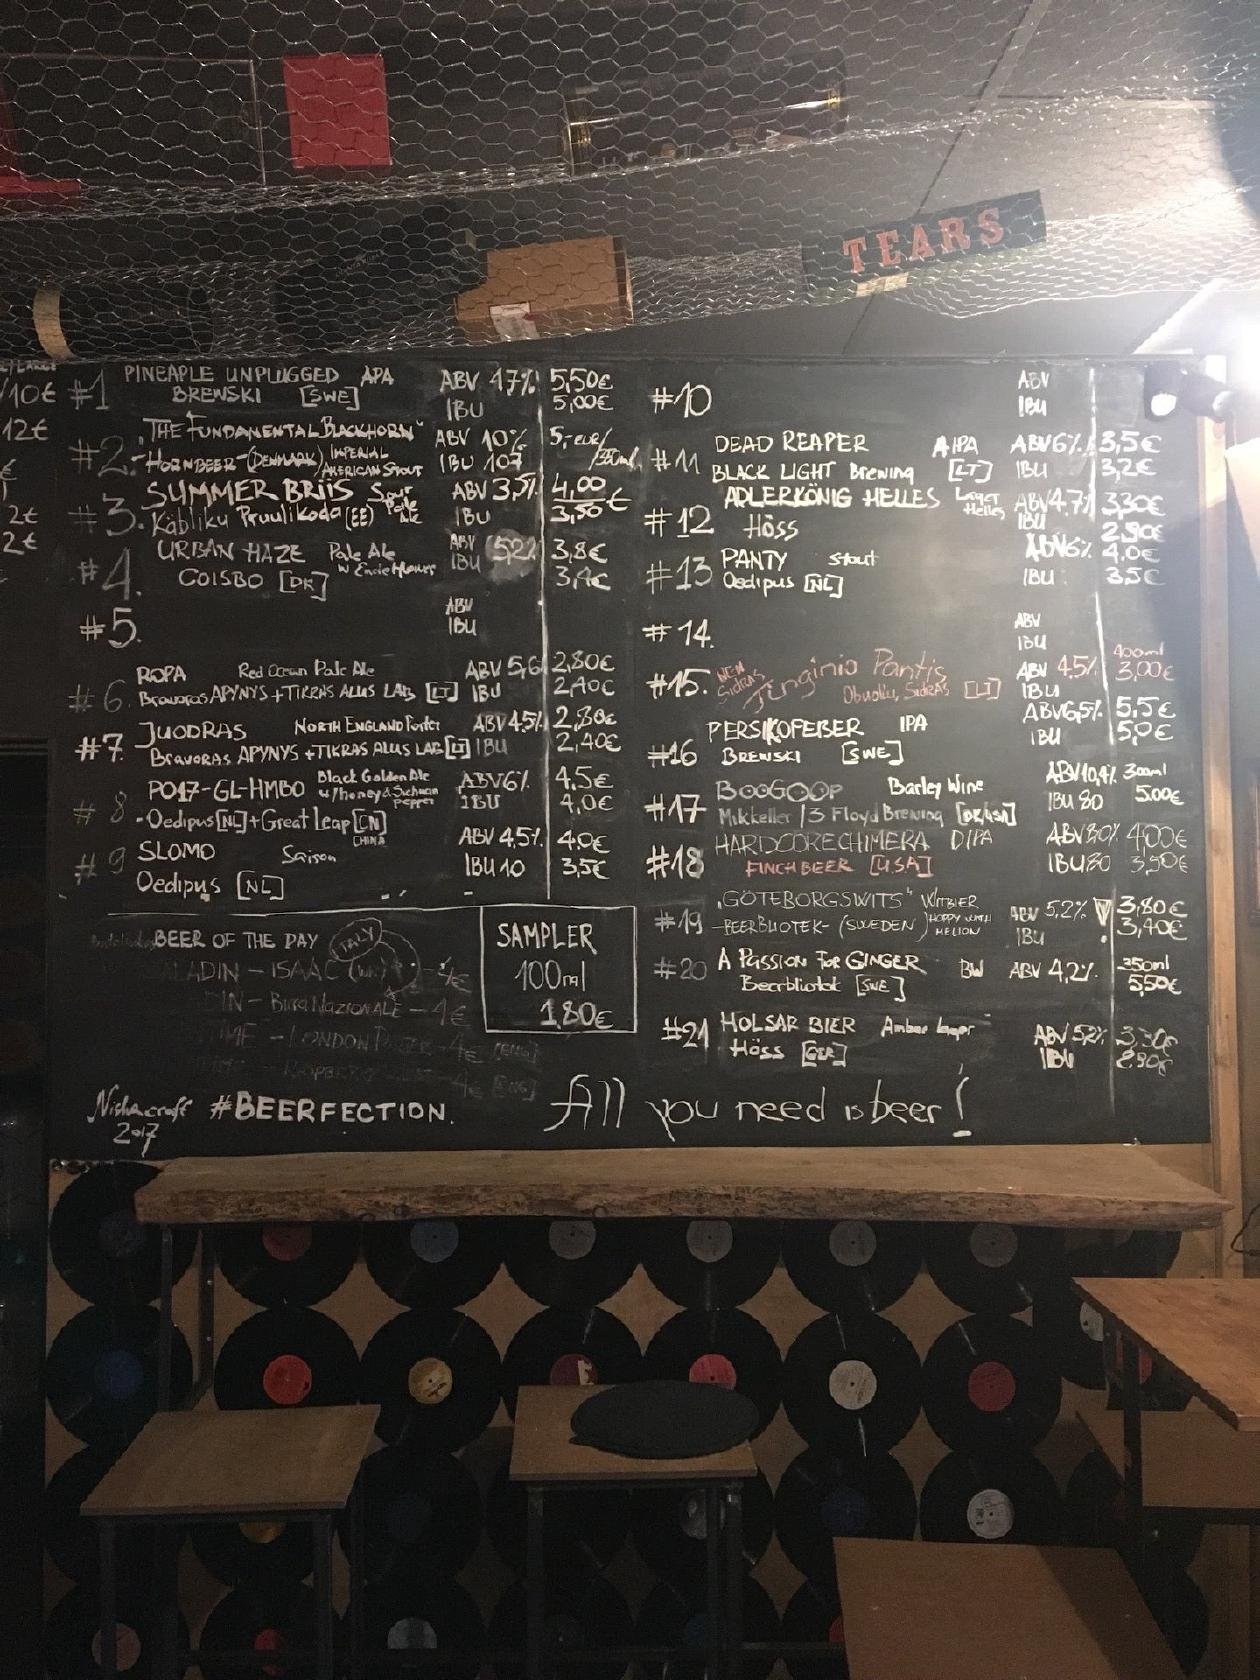 TEARS
10€
12€
2€
2€
#1 PINEAPLE UNPLUGGED APA ABV 4.7% 5,50€
BREWSKI [SWE] IBU 5,00€
#2. "THE FUNDAMENTAL BLACKHORN" ABV 10%
-HORNBEER-(DENMARK) IMPERIAL AMERICAN STOUT IBU 107
#3. SUMMER BRIIS Sour Pale Ale ABV 3,5% 4,00
Käbliku Pruulikoda (EE) IBU 3,50 €
#4. URBAN HAZE Pale Ale ABV 5,2% 3,8€
COISBO [DK] IBU 3,4€
#5. ABV
IBU
#6. ROPA Red Ocean Pale Ale ABV 5,6 2,80€
Bravoras APYNYS + TIKRAS ALUS LAB [LT] IBU 2,40€
#7. JUODRAS NORTH ENGLAND Porter ABV 4.5% 2,80€
Bravoras APYNYS + TIKRAS ALUS LAB [LT] IBU 2,40€
#8 PO17-GL-HMBO Black Golden Ale w/honey & Sichuan pepper ABV 6% 4.5€
-Oedipus [NL] + Great Leap [CN] CHINA IBU 4,0€
#9 SLOMO Saison ABV 4,5% 4,0€
Oedipus [NL] IBU 10 3,5€
BEER OF THE DAY ITALY
LADIN - ISAAC - 4€
DIN - Bura Nazionale - 4€
- LONDON - 4€ [ENG]
4€ [ENG]
SAMPLER
100ml
1,80€
#10 ABV
IBU
#11 DEAD REAPER AIPA ABV 6% 3,5€
BLACK LIGHT Brewing [LT] IBU 3,2€
#12 ADLERKÖNIG HELLES Lager Helles ABV 4.7% 3,30€
Höss IBU 2,90€
#13 PANTY stout ABV 6% 4,0€
Oedipus [NL] IBU 3,5€
#14. ABV
IBU
#15. NEW SIDRAS Jurginio Pantis ABV 4.5% 400ml 3,00€
Obuolių SIDRAS [LT] IBU
#16 PERSIKOFEBER IPA ABV 6,5% 5,5€
BREWSKI [SWE] IBU 5,0€
#17 BOOGOOP Barley Wine ABV 10,4% 300ml
Mikkeller / 3 Floyd Brewing [DK/USA] IBU 80 5.00€
#18 HARDCORECHIMERA DIPA ABV 8.0% 4,00€
FINCH BEER [USA] IBU 80 3,50€
#19 "GÖTEBORGSWITS" WITBIER ABV 5,2% 3,80€
-BEERBLIOTEK- (SWEDEN) HOPPY WITH MELLON IBU 3,40€
#20 A PASSION FOR GINGER BW ABV 4,2% 350ml
Beerbliotek [SWE] 5,50€
#21 HOLSAR BIER Amber lager ABV 5.2% 3,30€
Höss [GER] IBU 2,90€
2017 #BEERFECTION.
All you need is beer!